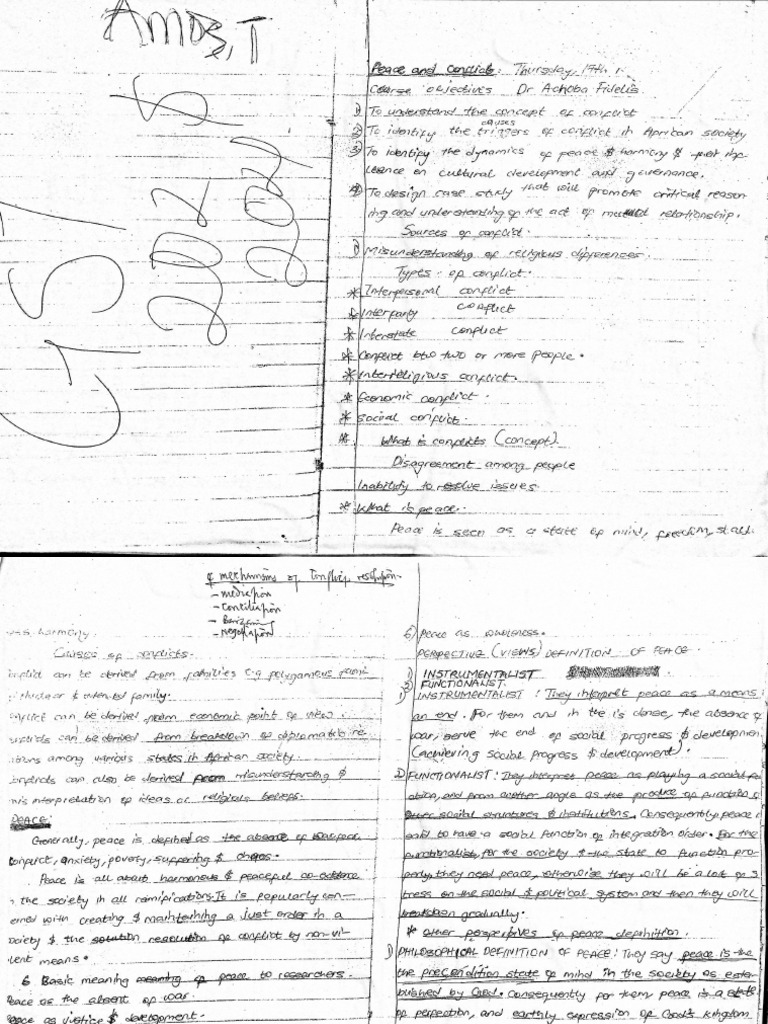 AMDB,T
GST
202
2024 $
Peace and Conflicts: Thursday, 17th
Course objectives Dr Achoba Fidelis
1) To understand the concept of conflict
causes
2) To identify the triggers of conflict in African society
3) To identify the dynamics of peace & harmony & their inf-
luence on cultural development and governance.
4) To design case study that will promote critical reason
ing and understanding of the act of mutual relationship.
Sources of conflict.
1) Misunderstanding of religious differences.
Types of conflict.
* Interpersonal conflict
* Interparty conflict
* Interstate conflict
* Conflict btw two or more people.
* Interreligious conflict.
* Economic conflict.
* Social conflict.
* What is conflicts (concept).
Disagreement among people
Inability to resolve issues
* What is peace.
Peace is seen as a state of mind, freedom,
4 mechanisms of Conflict resolution
- mediation
- conciliation
-
- negotiation
harmony.
Causes of conflicts.
can be derived from families e.g polygamous fami
& extended family.
conflict can be derived from economic point of view.
conflicts can be derived from breakdown of diplomatic re
lations among various states in African society.
conflicts can also be derived from misunderstanding &
misinterpretation of ideas or religious beliefs.
PEACE:
Generally, peace is defined as the absence of
conflict, anxiety, poverty, suffering & chaos.
Peace is all about harmonious & peaceful co-existence
in the society in all ramifications. It is popularly con-
erned with creating & maintaining a just order in a
society & the solution resolution of conflict by non-vi-
lent means.
6 Basic meaning meaning of peace to researchers.
Peace as the absent of war.
Peace as justice & development.
6) Peace as wholeness.
PERSPECTIVE (VIEWS) DEFINITION OF PEACE.
1) INSTRUMENTALIST
2) FUNCTIONALIST.
1) INSTRUMENTALIST: They interpret peace as a means
an end. For them and in the is dense, the absence of
war, serve the end of social progress & developmen
(achieving social progress & development).
2) FUNCTIONALIST: They interpret peace as playing a social fu
ction, and from another angle as the produce of function of
other social structures & institutions. Consequently peace i
said to have a social function of integration order. For the
functionalist, for the society & the state to function pro-
perly, they need peace, otherwise they will be a lot of s
tress on the social & political system and then they will
breakdown gradually.
* other perspectives of peace definition.
1) PHILOSOPHICAL DEFINITION OF PEACE: They say peace is the
the precondition state of mind in the society as estab
bulished by God. Consequently for them peace is a state
of perfection, and earthly expression of God's kingdom